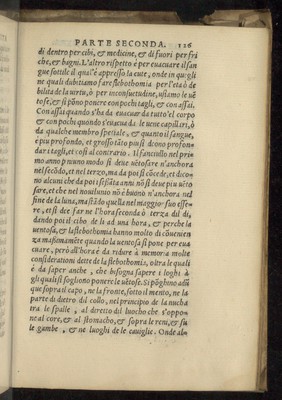 PARTE SECONDA. 126
di dentro per cibi, & medicine, & di fuori per fri
che, & bagni. L'altro rispetto è per euacuare il san
gue sottile il qual'è appresso la cute, onde in quegli
ne quali dubitiamo far flebothomia per l'età ò de
bilita de la uirtu, ò per inconsuetudine, usiamo le uẽ
tose, & si põno ponere con pochi tagli, & con assai.
Con assai quando s'ha da euacuar da tutto'l corpo
& con pochi quando s'euacua da le uene capillari, ò
da qualche membro spetiale, & quanto il sangue,
è piu profondo, et grosso tãto piu si dcono profon-
dar i tagli, et cosi al contrario. Il fanciullo nel pri=
mo anno p niuno modo si deue uẽtosare n'anchora
nel secõdo, et nel terzo, ma da poi si cõcede, et dico=
no alcuni che da poi i sessãta anni nõ si deue piu uẽto
sare, et che nel nouilunio nõ è buono n'anchora nel
fine de la luna, ma stãdo quella nel maggior suo esse=
re, et si dee far ne l'hora seconda ò terza dil di,
dando poi il cibo de li ad una hora, & perche la
uentosa, & la flebothomia hanno molto di cõuenien
za massimamẽte quando la uentosa si pone per eua
cuare, però all'hora è da ridure à memoria molte
considerationi dette de la flebothomia, oltra le quali
è da saper anche, che bisogna sapere i loghi à
gli quali si sogliono ponere le uẽtose. Si põghino adũ
que sopra il capo, ne la fronte, sotto il mento, ne la
parte di dietro dil collo, nel principio de la nucha
tra le spalle, al diretto dil luocho che s'oppo=
ne al core, & al stomacho, & sopra le reni, & su
le gambe, & ne luoghi de le cauiglie. Onde al=